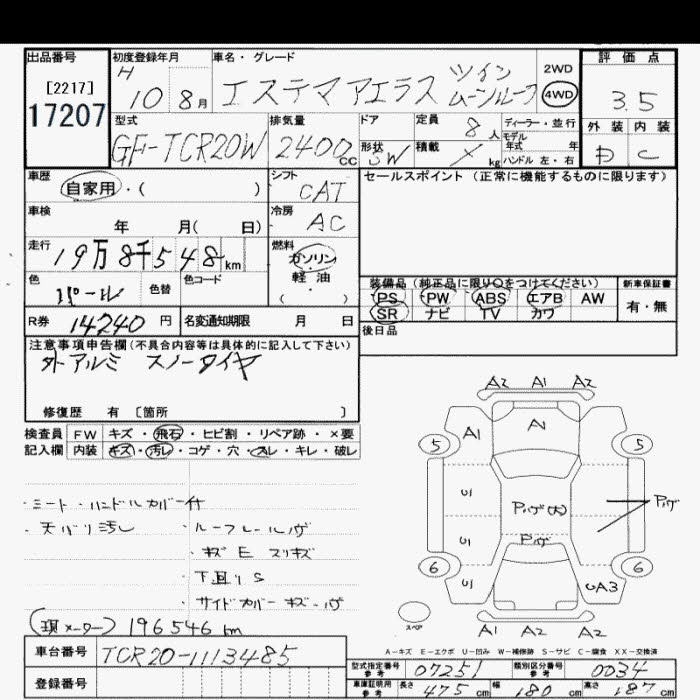 出品番号
[2217]
17207
初度登録年月
H 10 8月
車名・グレード
エステマ アエラス ツイン ムーンルーフ
2WD
4WD
評価点
3.5
外装 内装
D C
型式
GF-TCR20W
排気量
2400cc
ドア
形状
定員 8人
積載 × kg
ディーラー・並行
モデル年式 年
ハンドル 左・右
車歴
自家用・( )
シフト
CAT
車検
年 月( 日)
冷房
AC
走行
19万8千548km
燃料
ガソリン
軽油
( )
色
パール
色替
色コード
R券 14240円
名変通知期限 月 日
セールスポイント(正常に機能するものに限ります)
装備品(純正品に限り○をつけてください)
PS PW ABS エアB AW
SR ナビ TV カワ
新車保証書
有・無
後日品
注意事項申告欄(不具合内容等は具体的に記入して下さい)
外アルミ スノータイヤ
修復歴 有〔箇所 〕
検査員
記入欄
FW キズ・飛石・ヒビ割・リペア跡・×要
内装 キズ・汚レ・コゲ・穴・スレ・キレ・破レ
・ミート・ハンドルカバー付
・天バリ汚レ
・ルーフレールハゲ
・キズ E スリキズ
・下回り S
・サイドカバー キズ・ハゲ
(現メーター) 196546 km
A2 A1 A2
A1 A1
5 5
U1
U1
U1
Pハゲ(大)
Pハゲ
Pハゲ
6 6
UA3
スペア
A1 A2 A2
A-キズ E-エクボ U-凹み W-補修跡 S-サビ C-腐食 XX-交換済
車台番号 TCR20-1113485
登録番号
型式指定番号 参考 07251
類別区分番号 参考 0034
車庫証明用 参考 長さ 475cm 幅 180cm 高さ 187cm